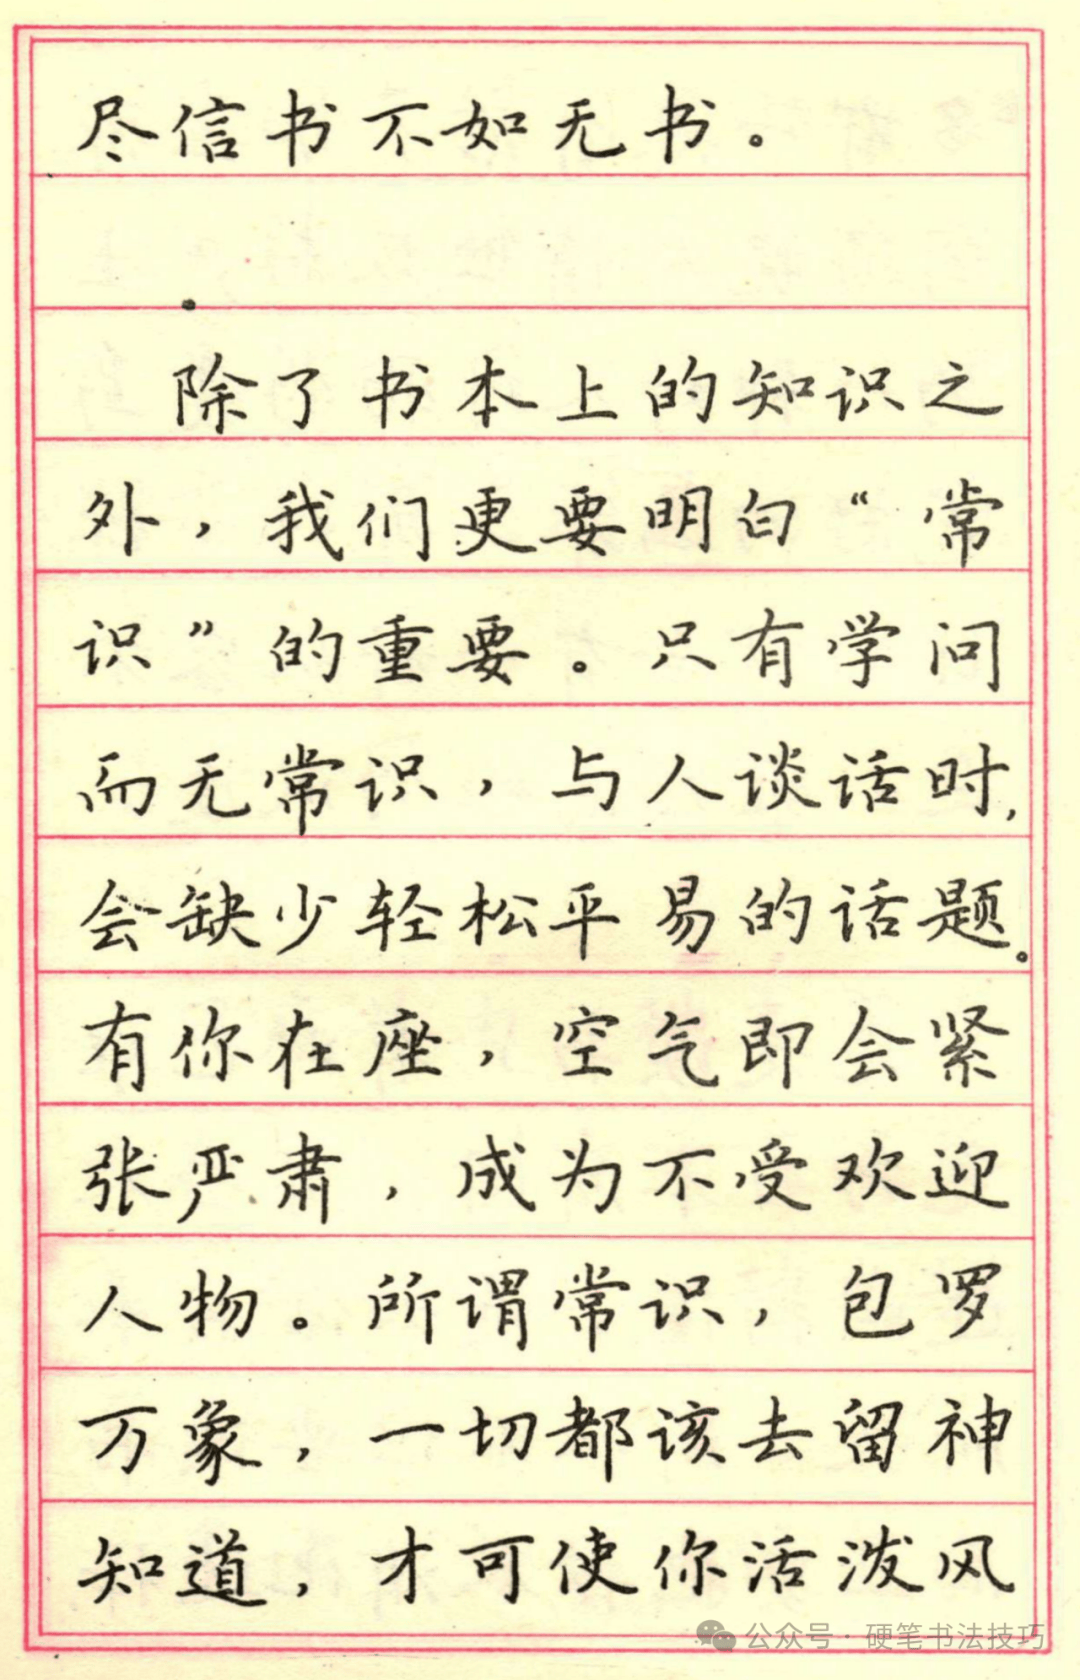 尽信书不如无书。
除了书本上的知识之
外，我们更要明白“常
识”的重要。只有学问
而无常识，与人谈话时，
会缺少轻松平易的话题。
有你在座，空气即会紧
张严肃，成为不受欢迎
人物。所谓常识，包罗
万象，一切都该去留神
知道，才可使你活泼风
公众号·硬笔书法技巧